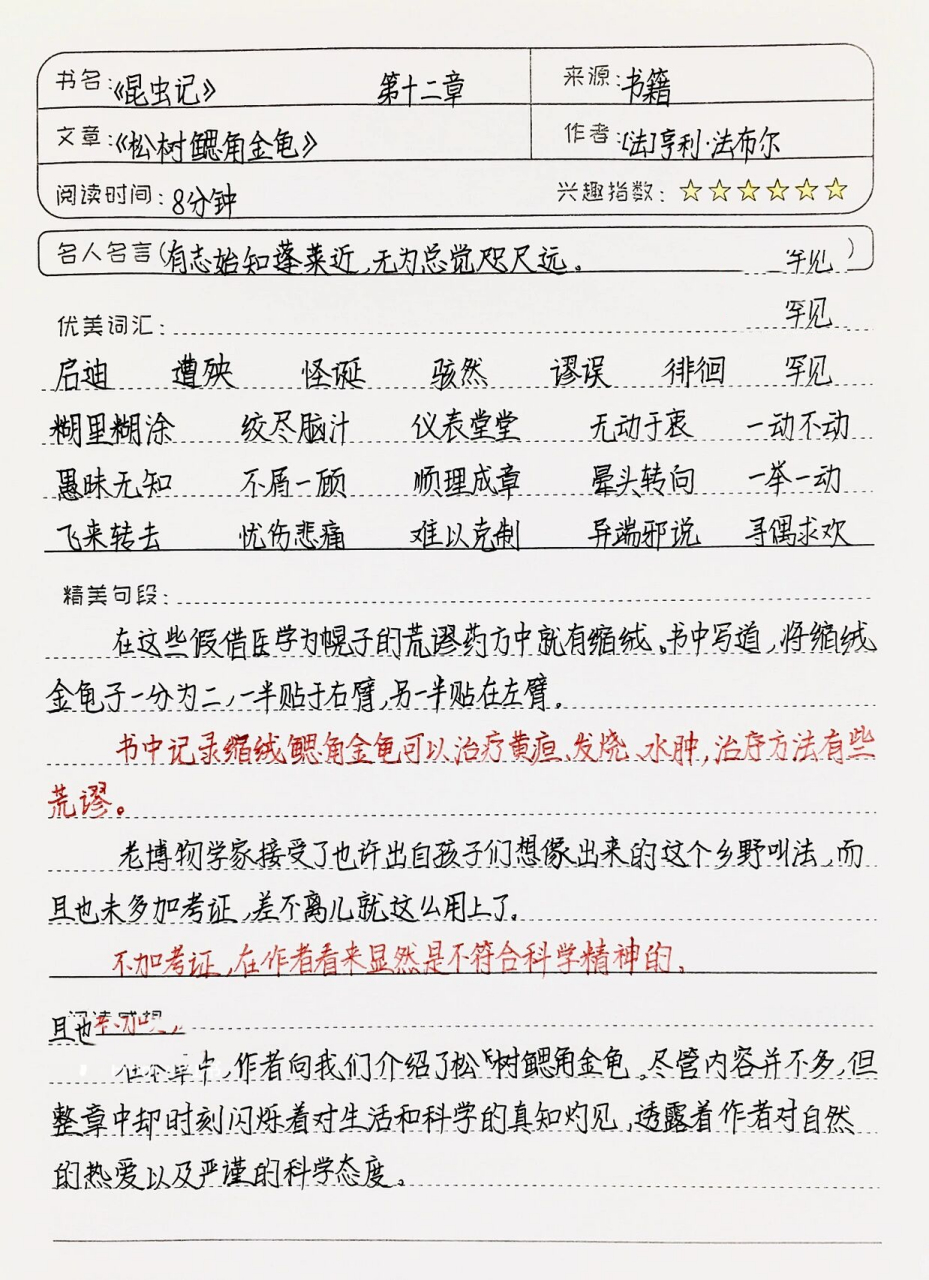 书名:《昆虫记》 第十二章 来源:书籍
文章:《松树鳃角金龟》 作者:[法]亨利·法布尔
阅读时间:8分钟 兴趣指数:☆☆☆☆☆☆
名人名言(有志始知蓬莱近,无为总觉咫尺远。 罕见)
优美词汇: 罕见
启迪 遭殃 怪诞 骇然 谬误 徘徊 罕见
糊里糊涂 绞尽脑汁 仪表堂堂 无动于衷 一动不动
愚昧无知 不屑一顾 顺理成章 晕头转向 一举一动
飞来转去 忧伤悲痛 难以克制 异端邪说 寻偶求欢
精美句段:
在这些假借医学为幌子的荒谬药方中就有缩绒。书中写道,将缩绒
金龟子一分为二,一半贴于右臂,另一半贴在左臂。
书中记录缩绒鳃角金龟可以治疗黄疸、发烧、水肿,治疗方法有些
荒谬。
老博物学家接受了也许出自孩子们想像出来的这个乡野叫法,而
且也未多加考证,差不离儿就这么用上了。
不加考证,在作者看来显然是不符合科学精神的。
且也
,作者向我们介绍了松树鳃角金龟。尽管内容并不多,但
整章中却时刻闪烁着对生活和科学的真知灼见,透露着作者对自然
的热爱以及严谨的科学态度。